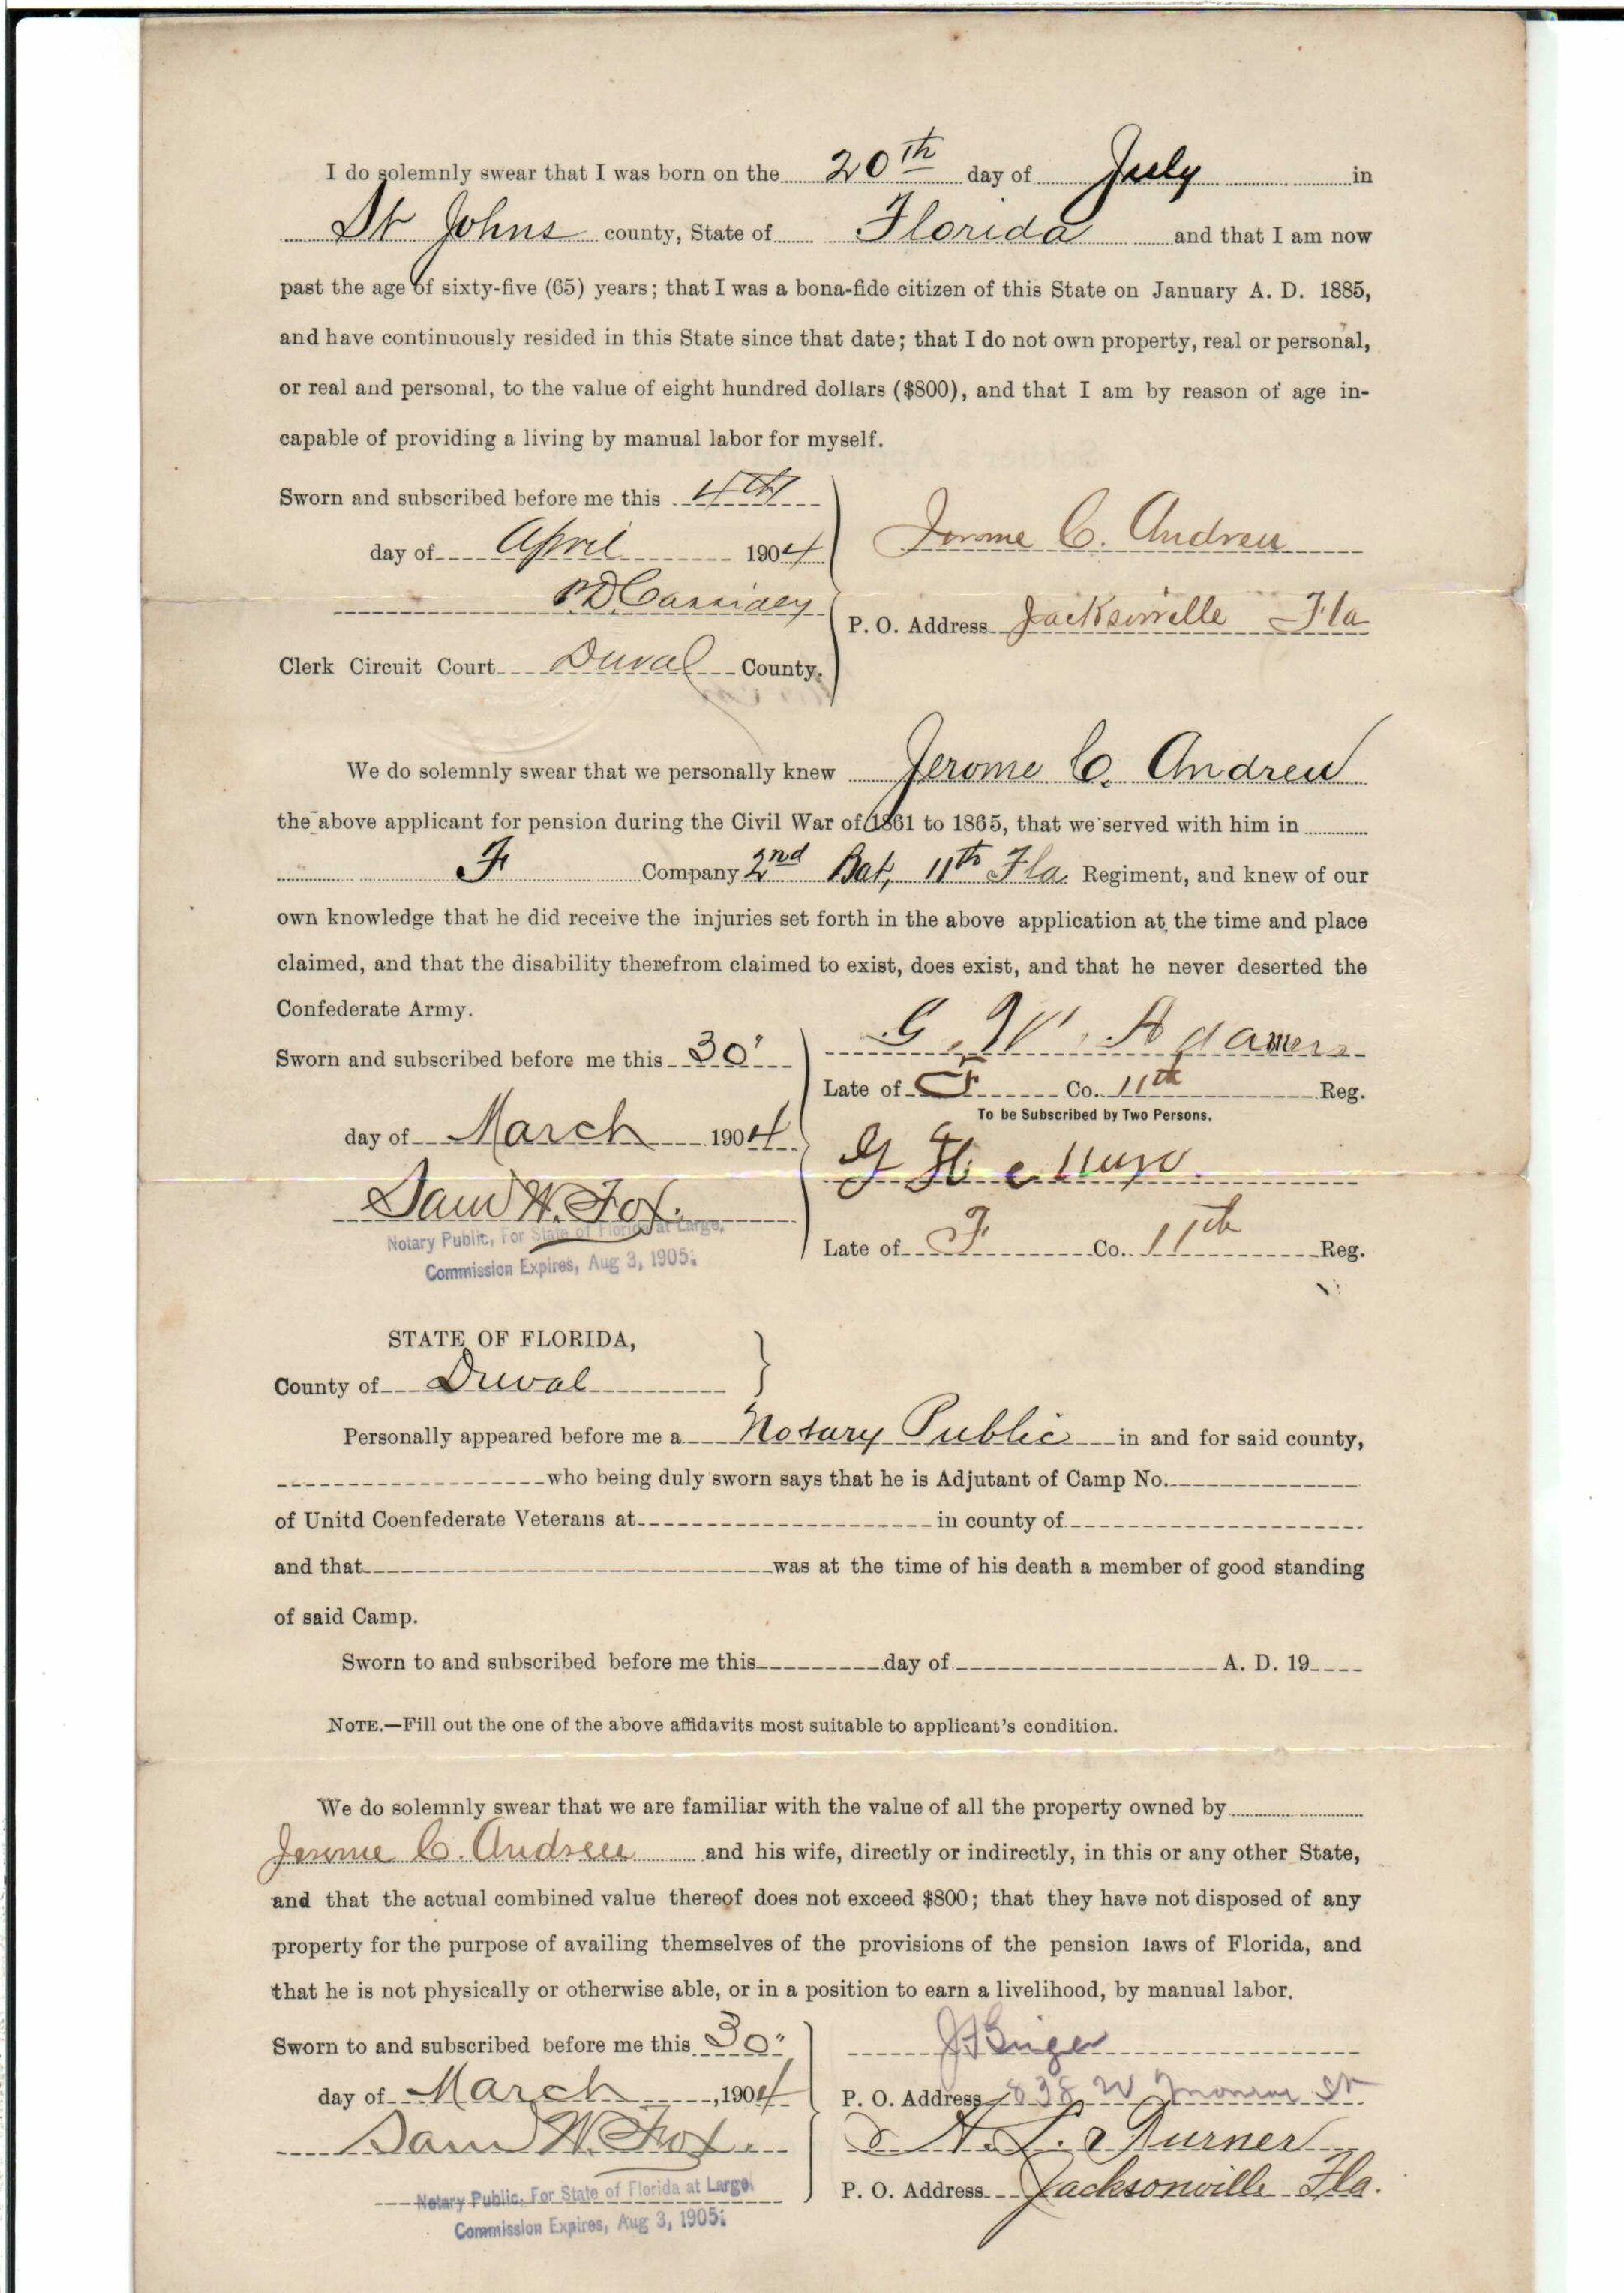 I do solemnly swear that I was born on the 20th day of July in
St Johns county, State of Florida and that I am now
past the age of sixty-five (65) years; that I was a bona-fide citizen of this State on January A. D. 1885,
and have continuously resided in this State since that date; that I do not own property, real or personal,
or real and personal, to the value of eight hundred dollars ($800), and that I am by reason of age in-
capable of providing a living by manual labor for myself.
Sworn and subscribed before me this 4th
day of April 1904
Jerome C. Andreu
P.D. Cassidey
P. O. Address Jacksonville Fla
Clerk Circuit Court Duval County.
We do solemnly swear that we personally knew Jerome C. Andreu
the above applicant for pension during the Civil War of 1861 to 1865, that we served with him in
F Company 2nd Bat, 11th Fla. Regiment, and knew of our
own knowledge that he did receive the injuries set forth in the above application at the time and place
claimed, and that the disability therefrom claimed to exist, does exist, and that he never deserted the
Confederate Army.
Sworn and subscribed before me this 30"
G. W. Adams
Late of F Co. 11th Reg.
To be Subscribed by Two Persons.
day of March 1904
G H
Sam W. Fox.
Notary Public, For State of Florida at Large.
Commission Expires, Aug 3, 1905.
Late of F Co. 11th Reg.
STATE OF FLORIDA,
County of Duval
Personally appeared before me a Notary Public in and for said county,
who being duly sworn says that he is Adjutant of Camp No.
of Unitd Coenfederate Veterans at in county of
and that was at the time of his death a member of good standing
of said Camp.
Sworn to and subscribed before me this day of A. D. 19
NOTE.—Fill out the one of the above affidavits most suitable to applicant's condition.
We do solemnly swear that we are familiar with the value of all the property owned by
Jerome C. Andreu and his wife, directly or indirectly, in this or any other State,
and that the actual combined value thereof does not exceed $800; that they have not disposed of any
property for the purpose of availing themselves of the provisions of the pension laws of Florida, and
that he is not physically or otherwise able, or in a position to earn a livelihood, by manual labor.
Sworn to and subscribed before me this 30"
day of March, 1904
P. O. Address 838 W Monroe St
Sam W. Fox.
Turner
Notary Public, For State of Florida at Large.
Commission Expires, Aug 3, 1905.
P. O. Address Jacksonville Fla.